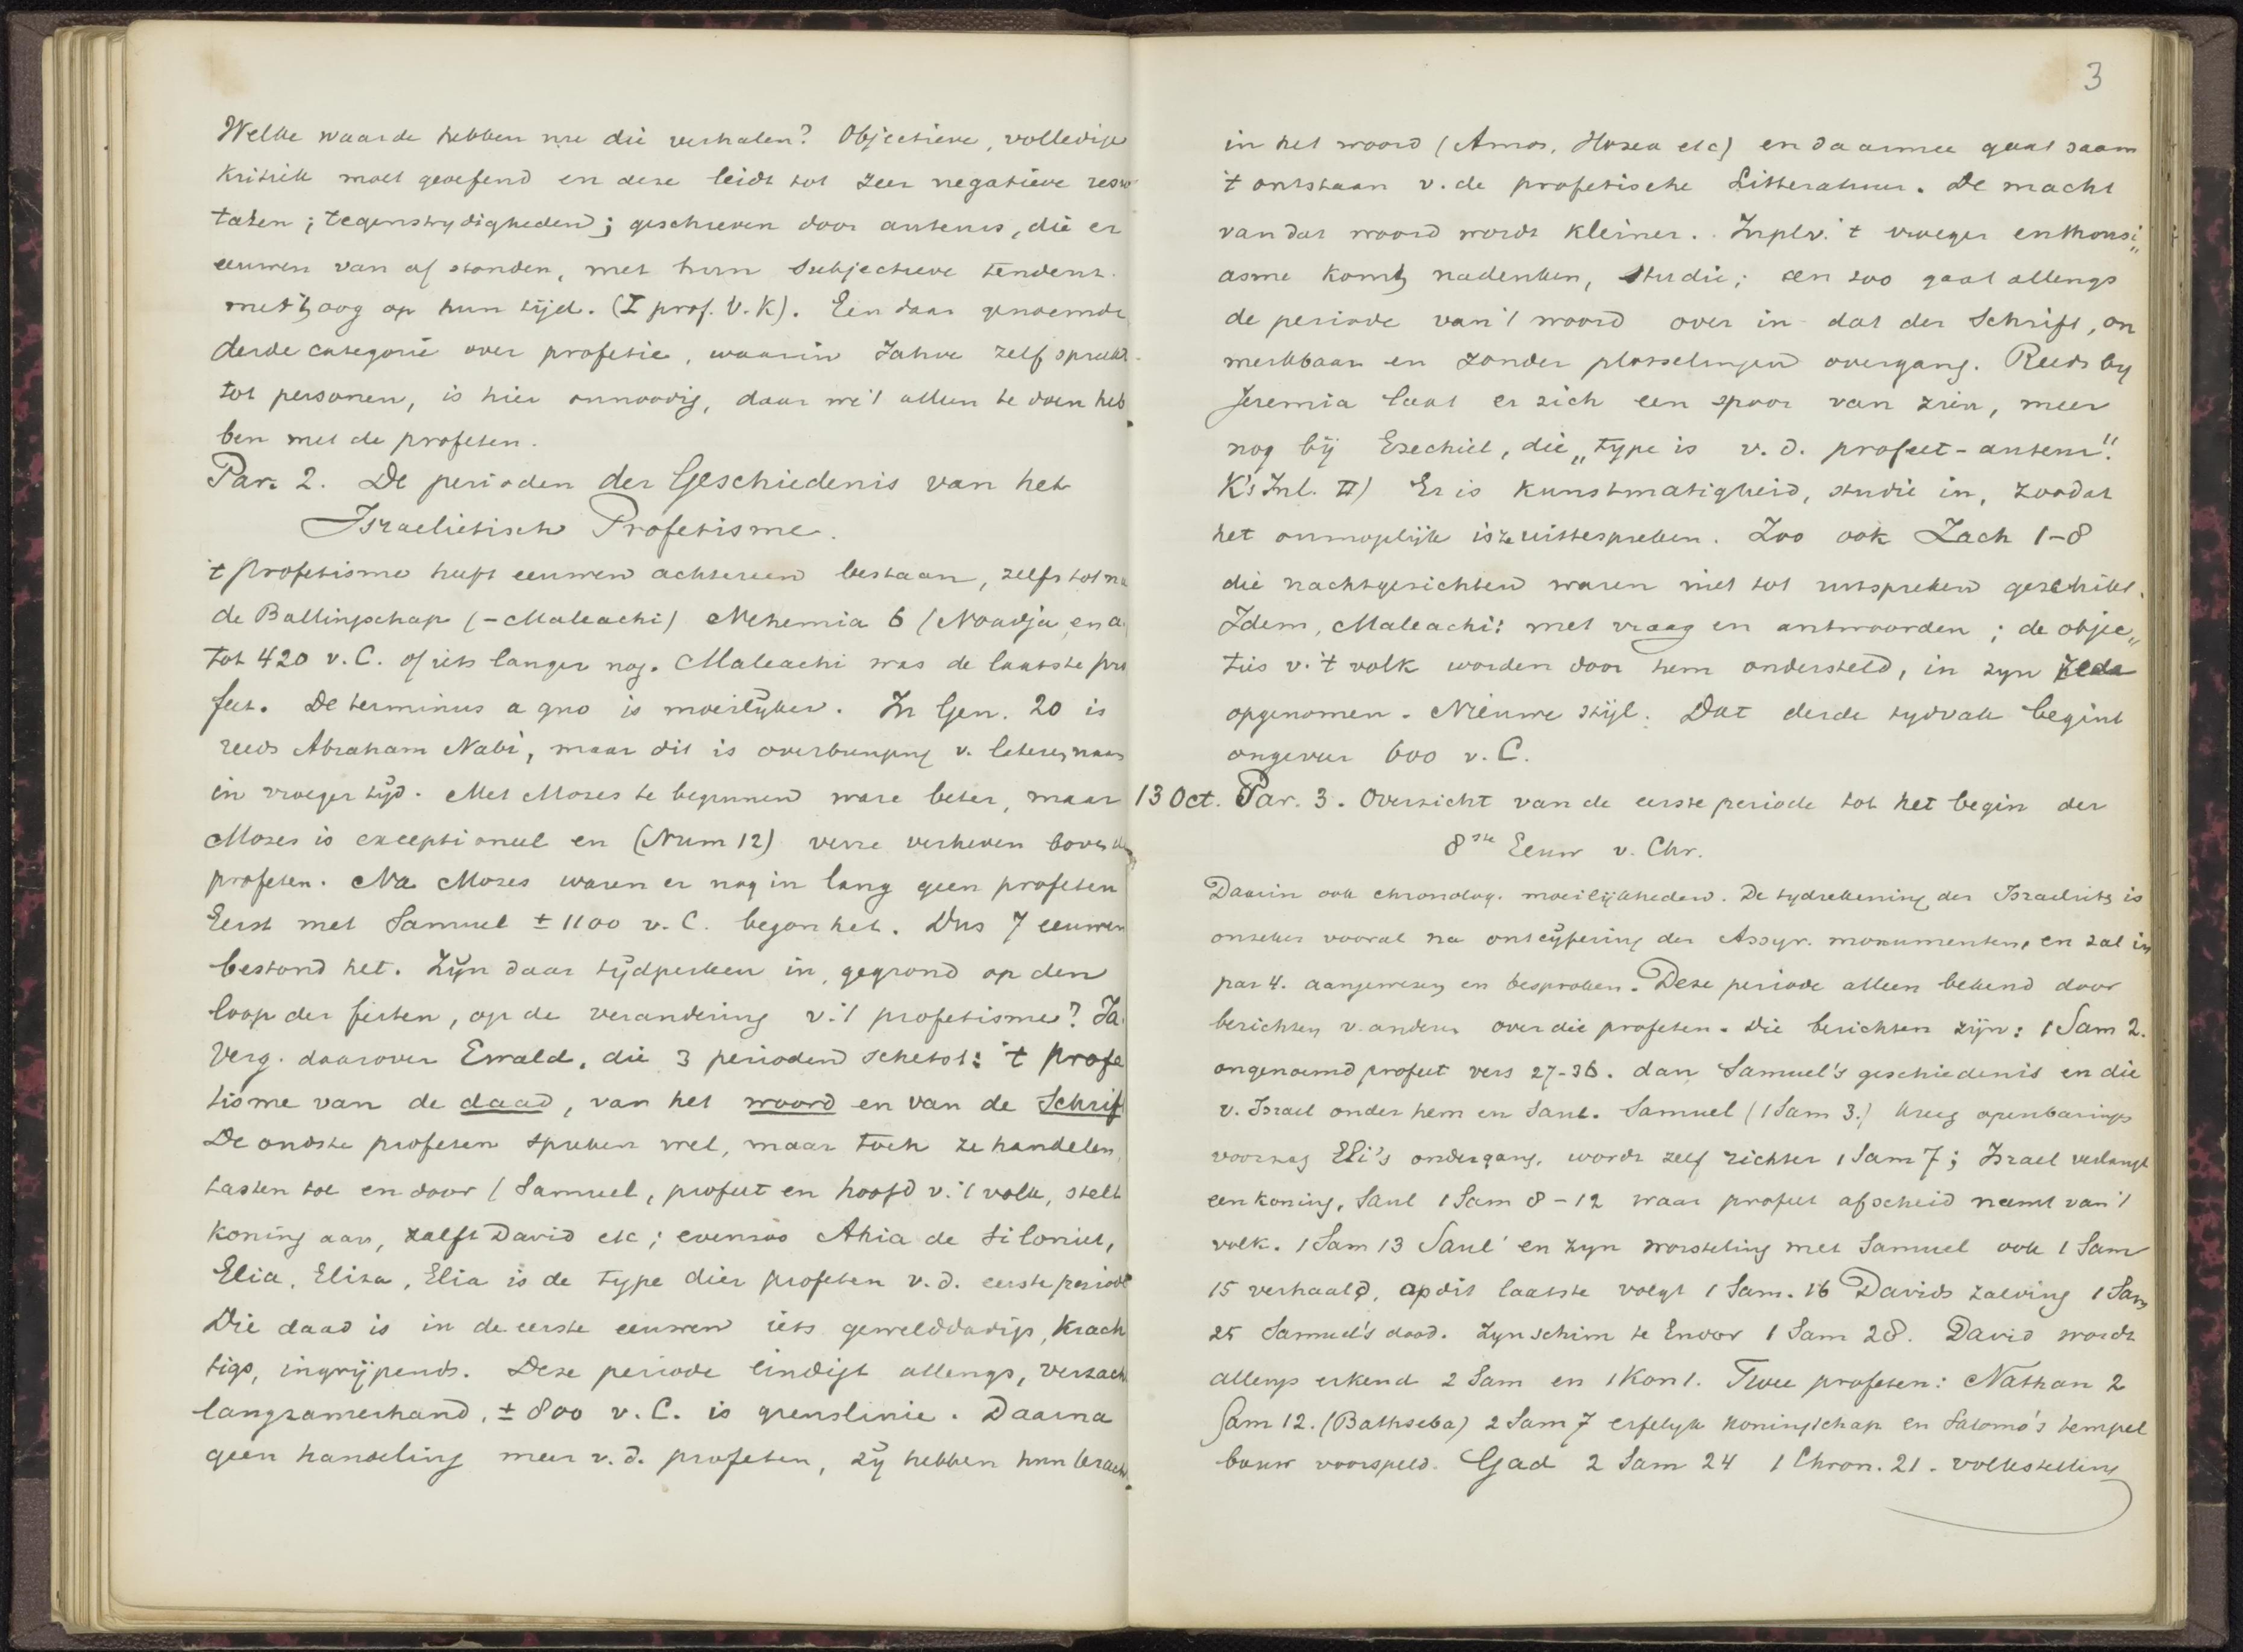 Welke waarde hebben nu die verhalen? Objectieve, volledige
Kritiek moet geoefend en deze leidt tot zeer negatieve resul
taten; tegenstrydigheden; geschreven door auteurs, die er
eeuwen van af stonden, met hun subjectieve tendenz
met 't oog op hun tijd. (I prof. V. K). Een daar genoemde
derde categorie over profetie, waarin Jahve zelf spreekt
tot personen, is hier onnoodig, daar we 't alleen te doen heb
ben met de profeten.
Par. 2. De perioden der Geschiedenis van het
Israelietisch Profetisme.
't profetisme heeft eeuwen achtereen bestaan, zelfs tot na
de Ballingschap (-Maleachi) Nehemia 6 (Noadja, en a
tot 420 v. C. of iets langer nog. Maleachi was de laatste pro
feet. De terminus a quo is moeilijker. In Gen. 20 is
reeds Abraham Nabi, maar dit is overbrenging v. lateren naam
in vroeger tijd. Met Mozes te beginnen ware beter, maar
Mozes is exceptioneel en (Num 12) verre verheven boven de
profeten. Na Mozes waren er nog in lang geen profeten
Eerst met Samuel ± 1100 v. C. begon het. Dus 7 eeuwen
bestond het. Zijn daar tijdperken in, gegrond op den
loop der feiten, op de verandering v. 't profetisme? Ja.
Verg. daarover Ewald, die 3 perioden schetst: 't profe
tisme van de daad, van het woord en van de Schrift
De oudste profeten spreken wel, maar toch ze handelen,
tasten toe en door (Samuel, profeet en hoofd v. 't volk, stelt
koning aan, zalft David etc; evenzoo Ahia de Siloniet,
Elia, Eliza, Elia is de type dier profeten v. d. eerste periode
Die daad is in de eerste eeuwen iets gewelddadigs, krach
tigs, ingrijpends. Deze periode eindigt allengs, verzacht
langzamerhand, ± 800 v. C. is grenslinie. Daarna
geen handeling meer v. d. profeten, zij hebben hun kracht
3
in het woord (Amos, Hosea etc) en daarmee gaat saam
't ontstaan v. de profetische Litteratuur. De macht
van dat woord wordt kleiner. Inpl. v. 't vroeger enthousi„
asme komt nadenken, studie; en zoo gaat allengs
de periode van 't woord over in dat der Schrift, on
merkbaar en zonder plotselingen overgang. Reeds by
Jeremia laat er zich een spoor van zien, meer
nog bij Ezechiel, die „type is v. d. profeet-auteur".
K's Inl. II) Er is kunstmatigheid, studie in, zoodat
het onmogelijk is ze uittespreken. Zoo ook Zach 1-8
die nachtgezichten waren niet tot uitspreken geschikt.
Idem, Maleachi: met vraag en antwoorden; de objec„
ties v. 't volk worden door hem ondersteld, in zyn rede
opgenomen. Nieuwe stijl. Dat derde tydvak begint
ongeveer 600 v. C.
13 Oct. Par. 3. Overzicht van de eerste periode tot het begin der
8ste Eeuw v. Chr.
Daarin ook chronolog. moeilijkheden. De tydrekening der Israelieten is
onzeker vooral na ontcijfering der Assyr. monumenten, en zal in
par 4. aangewezen en besproken. Deze periode alleen bekend door
berichten v. anderen over die profeten. Die berichten zijn: 1 Sam 2.
ongenoemd profeet vers 27-36. dan Samuel's geschiedenis en die
v. Israel onder hem en Saul. Samuel (1 Sam 3.) kreeg openbarings
voorzag Eli's ondergang, wordt zelf richter 1 Sam 7; Israel verlangt
een koning, Saul 1 Sam 8-12 waar profeet afscheid neemt van 't
volk. 1 Sam 13 Saul en zyn worsteling met Samuel ook 1 Sam
15 verhaald, op dit laatste volgt 1 Sam. 16 Davids zalving 1 Sam
25 Samuel's dood. Zyn schim te Endor 1 Sam 28. David wordt
allengs erkend 2 Sam en 1 Kon 1. Twee profeten: Nathan 2
Sam 12. (Bathseba) 2 Sam 7 erfelyk koningschap en Salomo's tempel
bouw voorspeld. Gad 2 Sam 24 1 Chron. 21. volkstelling